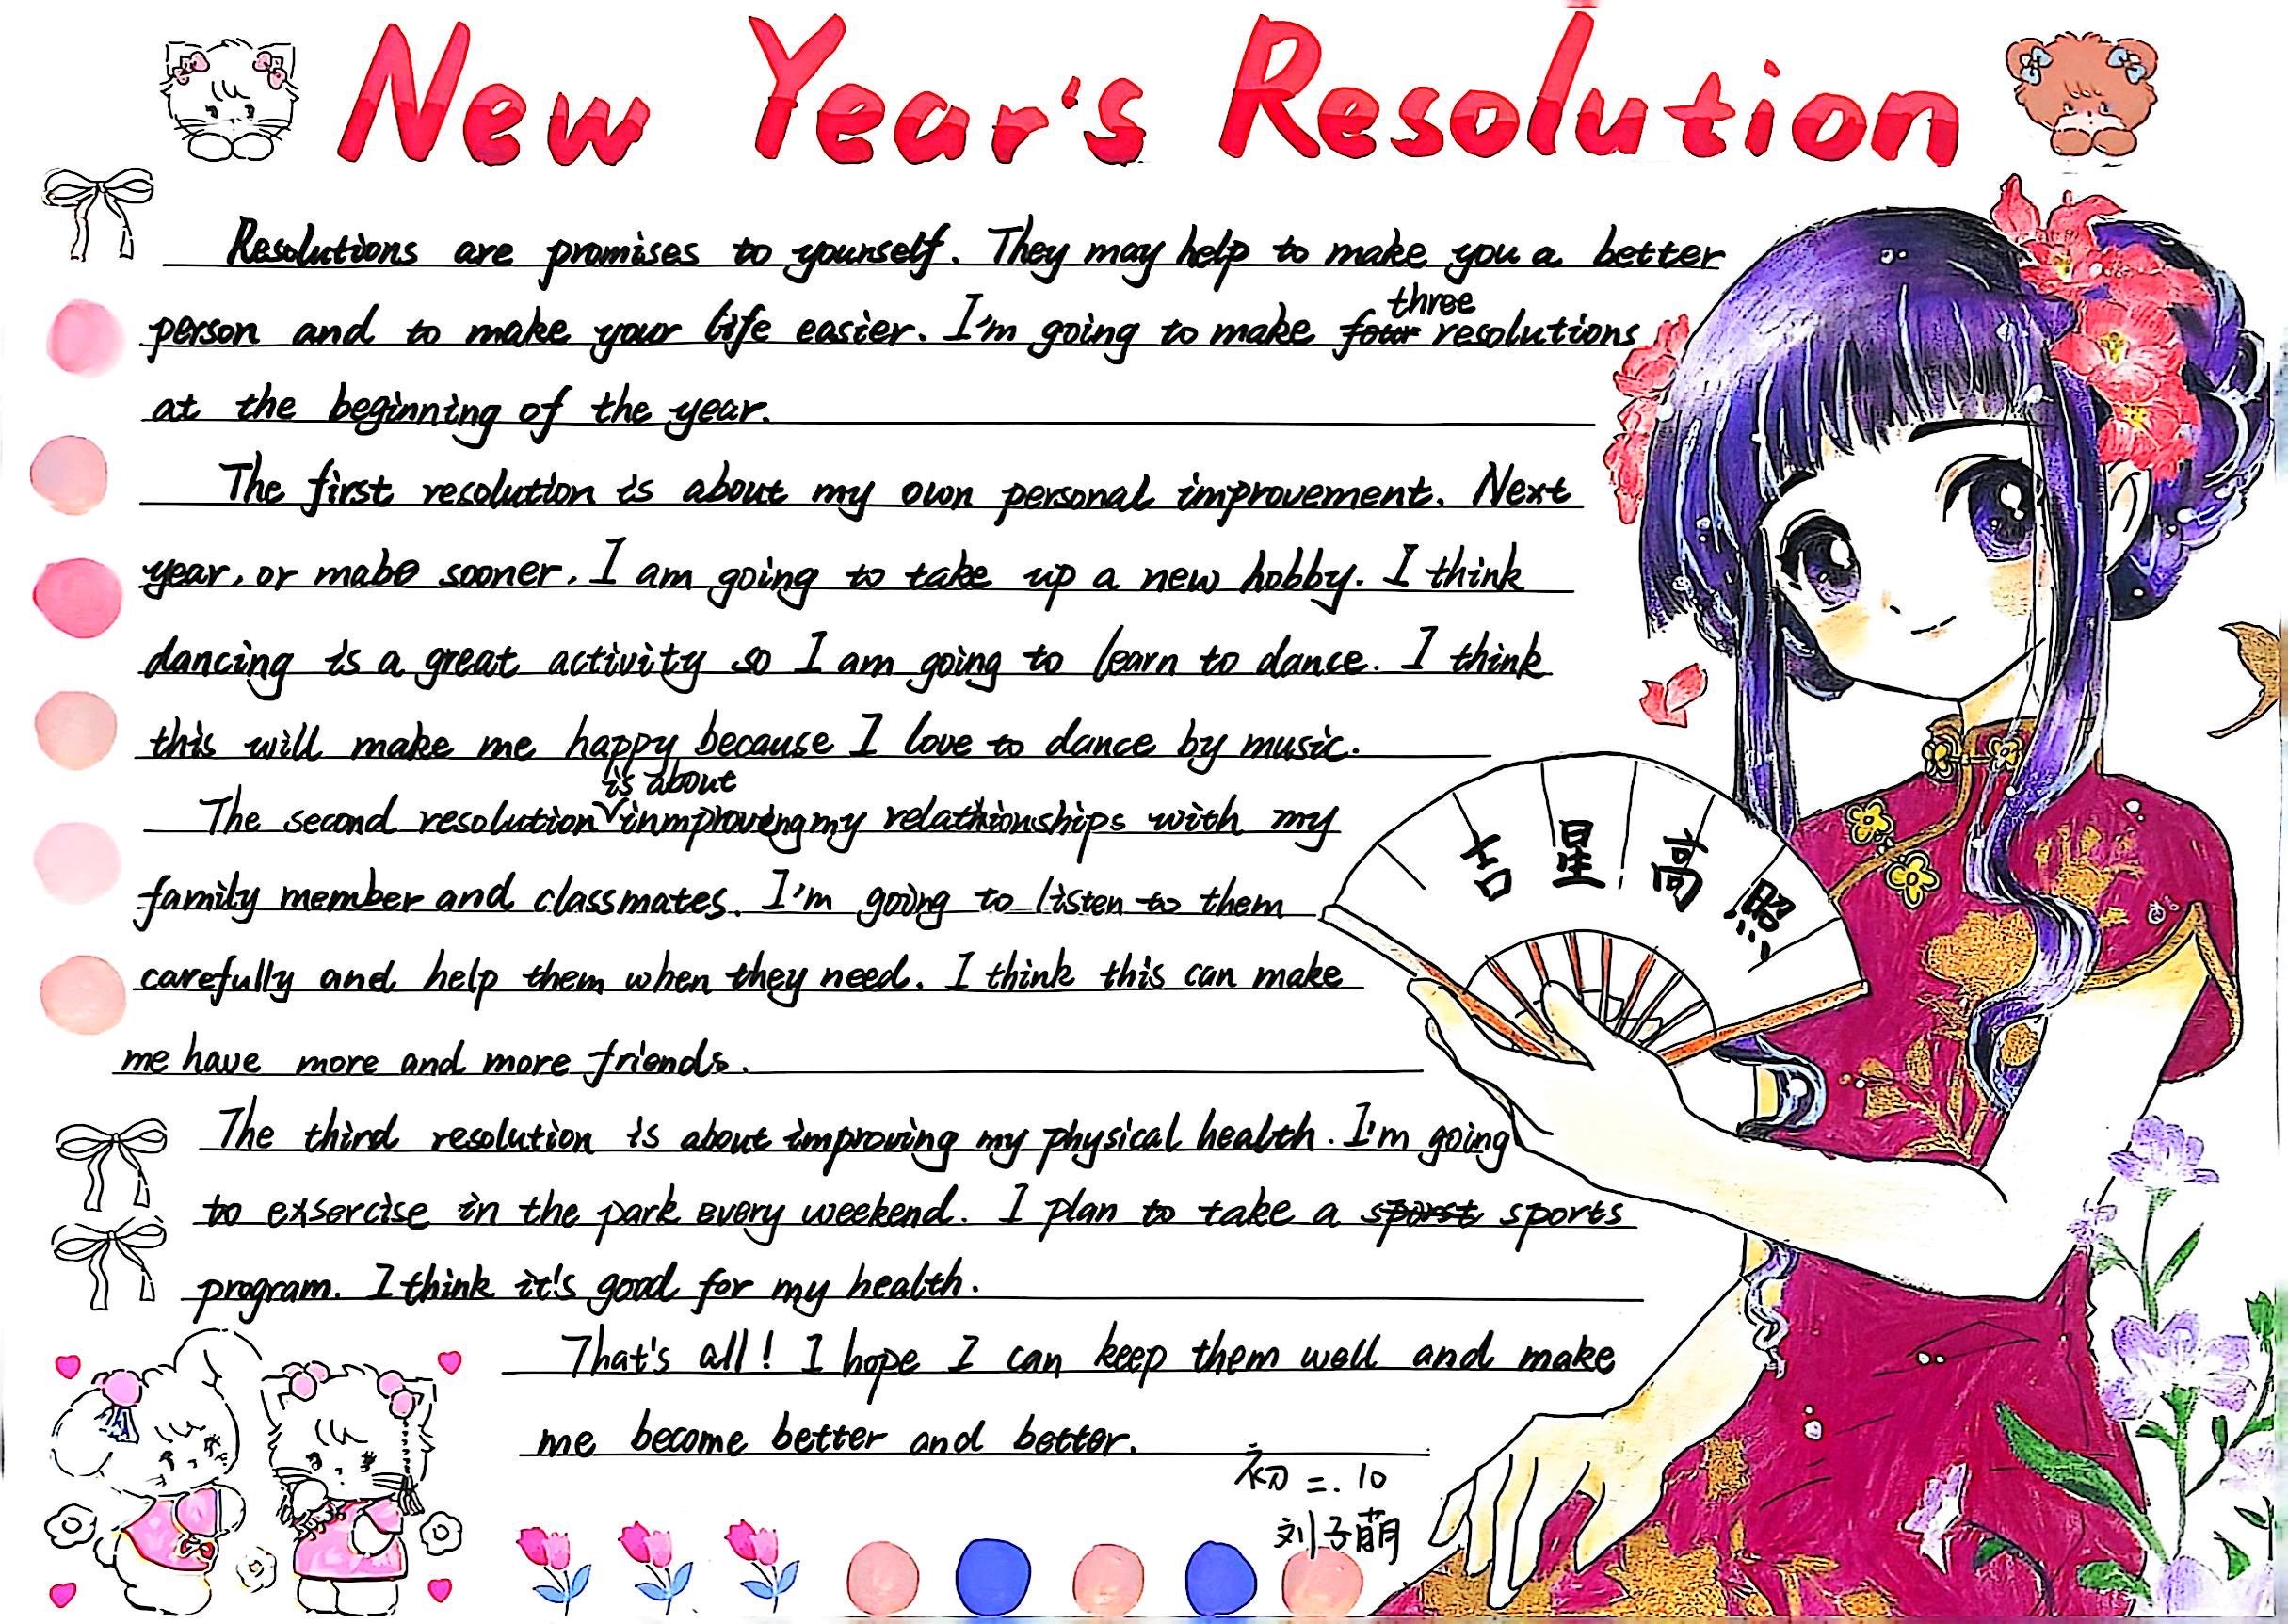 New Year's Resolution
Resolutions are promises to yourself. They may help to make you a better
person and to make your life easier. I'm going to make four three resolutions
at the beginning of the year.
The first resolution is about my own personal improvement. Next
year, or mabe sooner, I am going to take up a new hobby. I think
dancing is a great activity so I am going to learn to dance. I think
this will make me happy because I love to dance by music.
The second resolution is about inmproving my relathionships with my
family member and classmates. I'm going to listen to them
carefully and help them when they need. I think this can make
me have more and more friends.
The third resolution is about improving my physical health. I'm going
to exsercise in the park every weekend. I plan to take a sporst sports
program. I think it's good for my health.
That's all! I hope I can keep them well and make
me become better and better.
初二.10
刘子萌
吉星高照